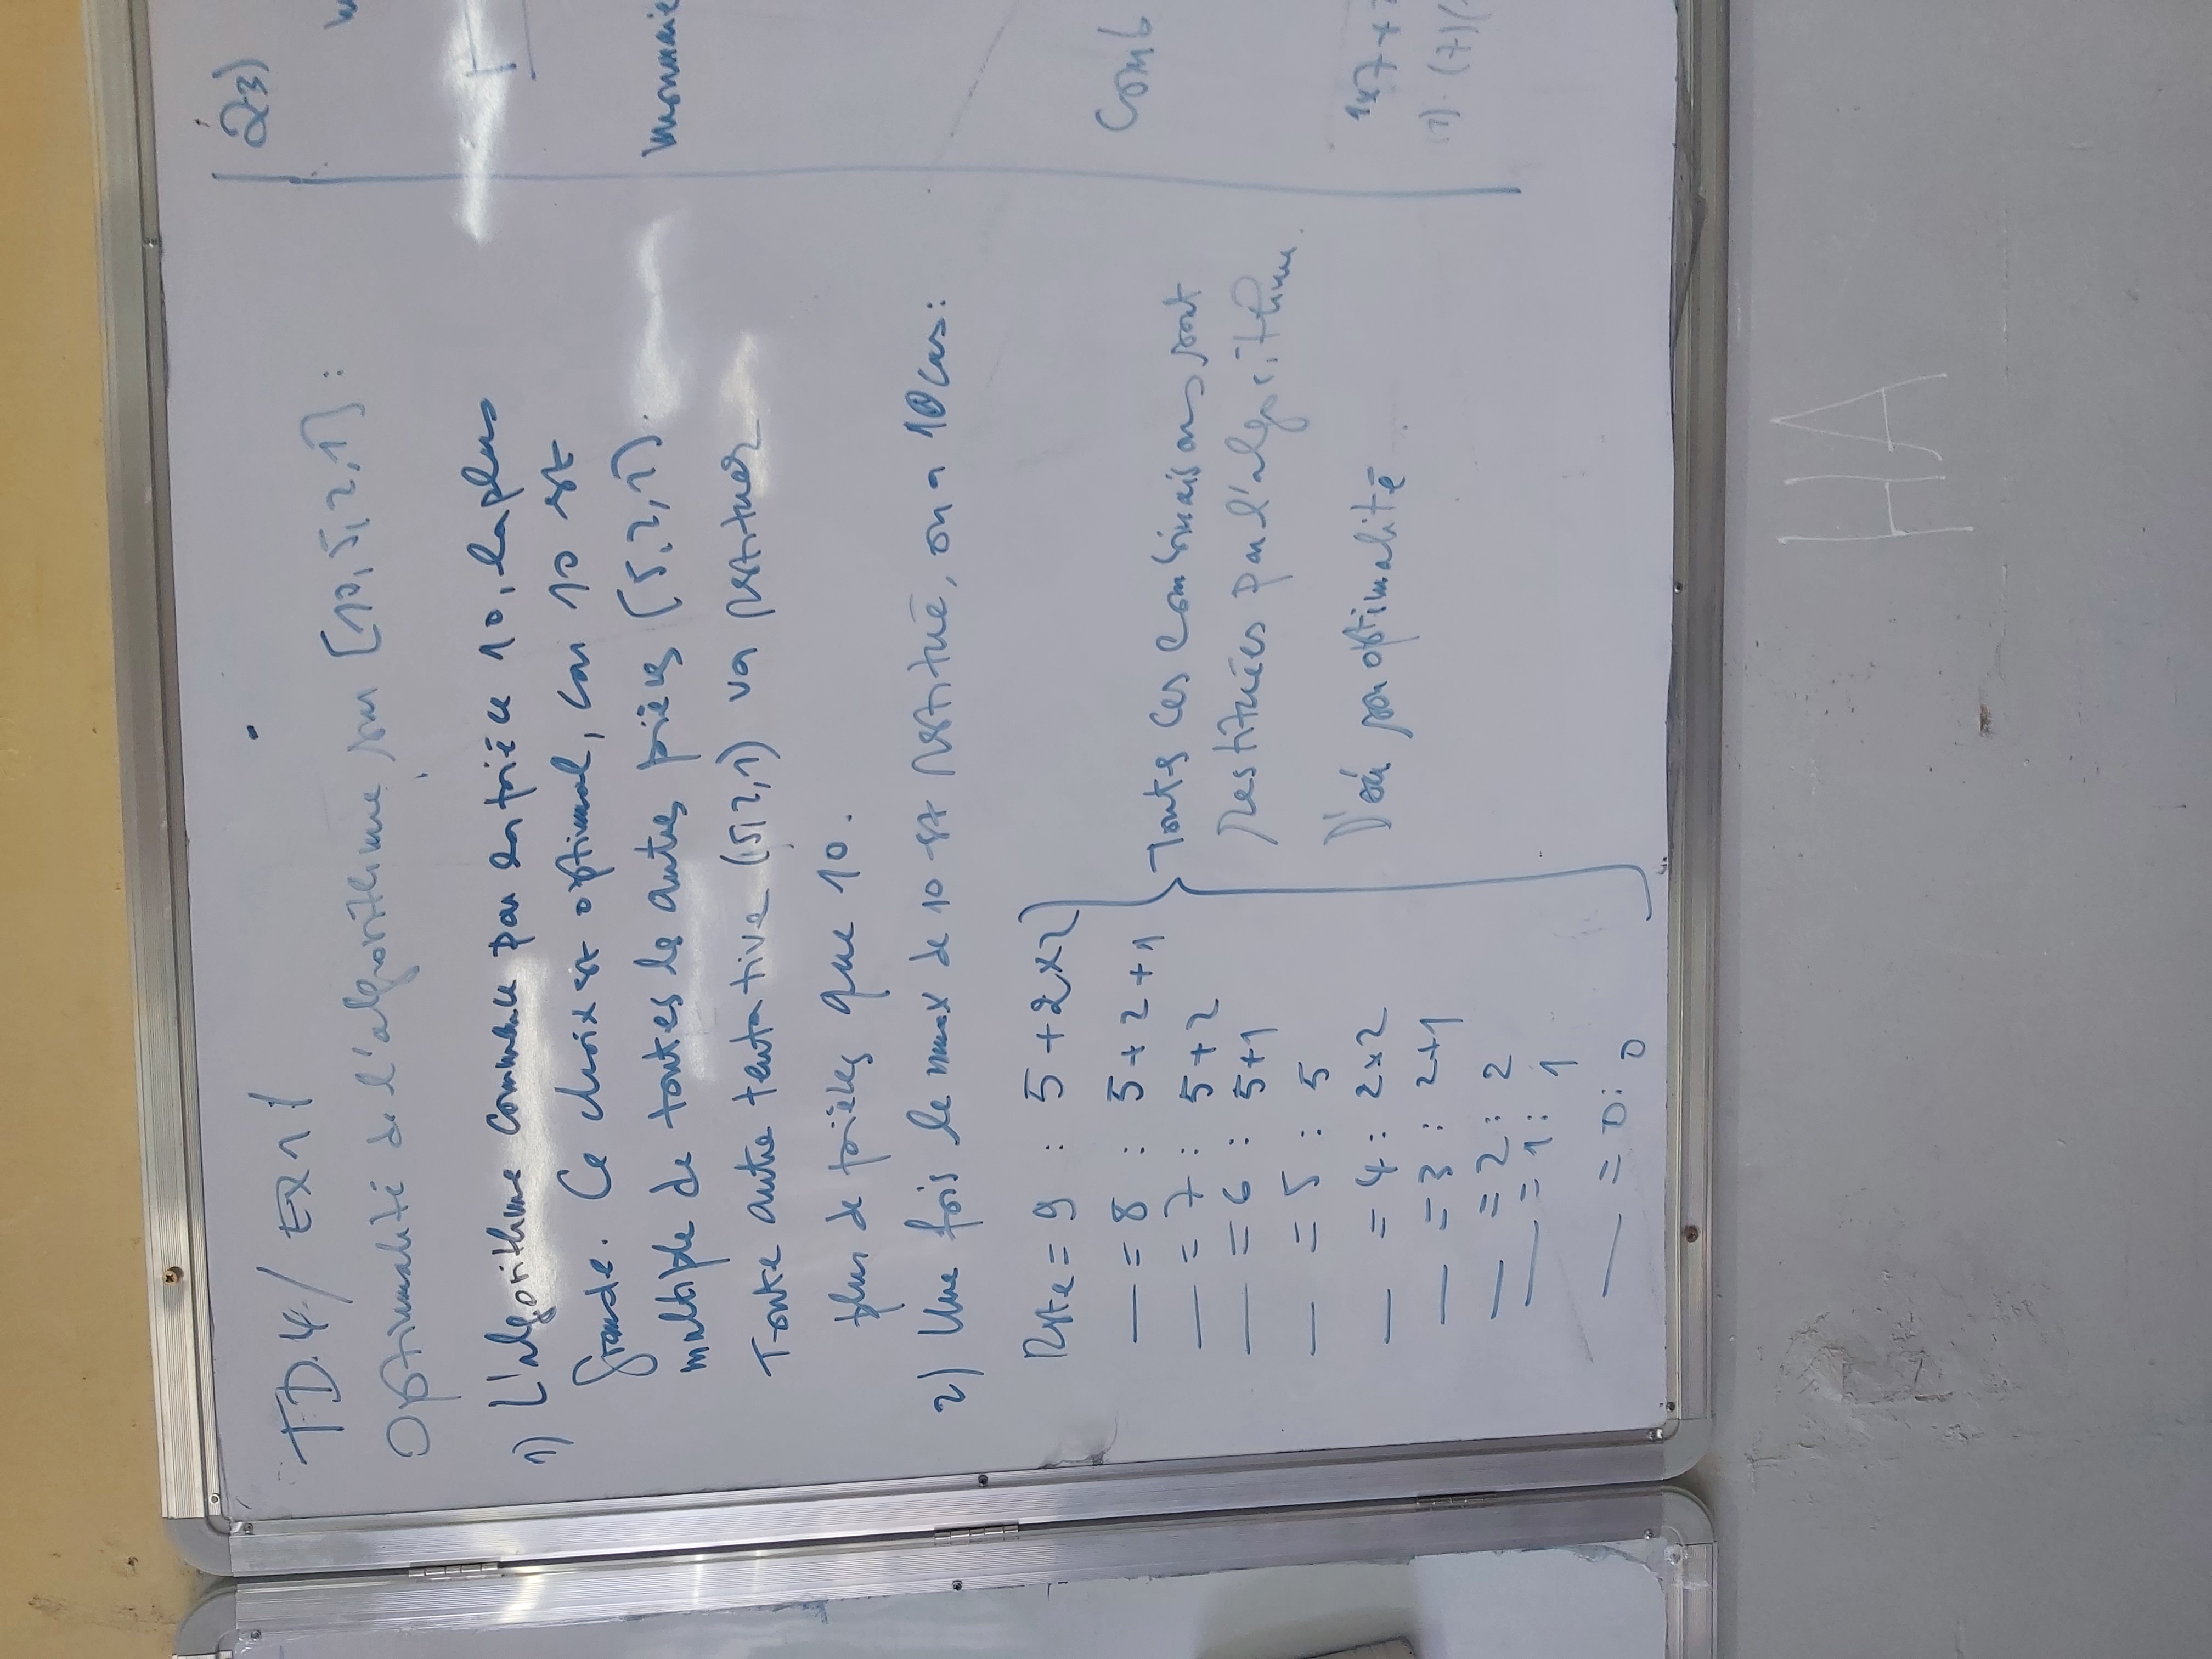 TD.4/ EX1/
Optimalité de l'algorithme sur [10, 5, 2, 1] :
1) L'algorithme commence par la pièce 10, la plus
grande. Ce choix est optimal, car 10 est
multiple de toutes les autres pièces [5, 2, 1].
Toute autre tentative (5, 2, 1) va restituer
plus de pièces que 10.
2) Une fois le max de 10 est restitué, on a 10 cas :
Reste = 9 : 5 + 2x2
— = 8 : 5 + 2 + 1
— = 7 : 5 + 2
— = 6 : 5+1
— = 5 : 5
— = 4 : 2x2
— = 3 : 2+1
— = 2 : 2
— = 1 : 1
— = 0 : 0
Toutes ces combinaisons sont
restituées par l'algorithme.
D'où son optimalité.
Q3)
monnaie
Comb
1x7+
(7)(
HA